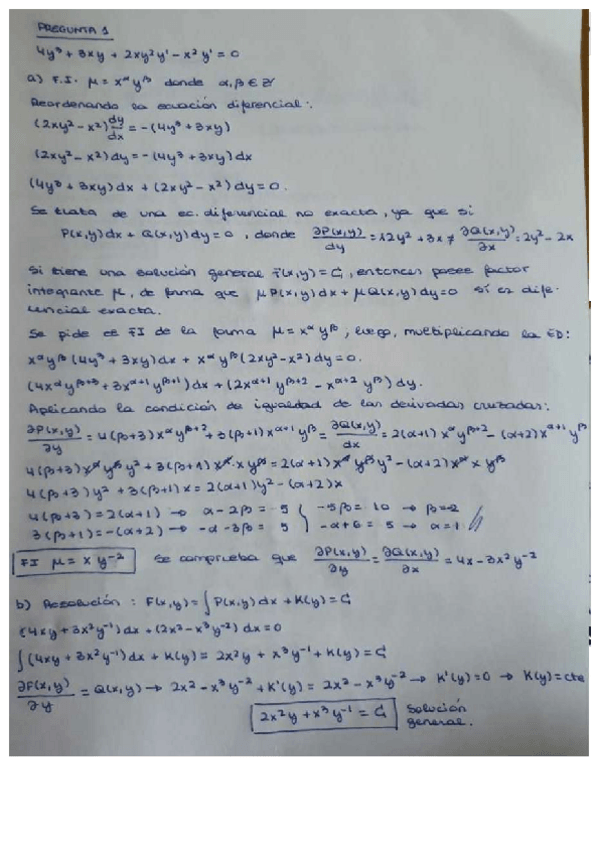 PREGUNTA 1
4y³ + 3xy + 2xy²y' - x²y' = 0
a) F.I. μ = x^α y^β donde α, β ∈ Z
Reordenando la ecuación diferencial:
(2xy² - x²) dy/dx = -(4y³ + 3xy)
(2xy² - x²) dy = -(4y³ + 3xy) dx
(4y³ + 3xy) dx + (2xy² - x²) dy = 0.
Se trata de una ec. diferencial no exacta, ya que si
P(x,y) dx + Q(x,y) dy = 0, donde ∂P(x,y)/dy = 12y² + 3x ≠ ∂Q(x,y)/∂x = 2y² - 2x
Si tiene una solución general F(x,y) = C, entonces posee factor
integrante μ, de forma que μP(x,y) dx + μQ(x,y) dy = 0 sí es dife-
rencial exacta.
Se pide el FI de la forma μ = x^α y^β, luego, multiplicando la ED:
x^α y^β (4y³ + 3xy) dx + x^α y^β (2xy² - x²) dy = 0.
(4x^α y^β+3 + 3x^α+1 y^β+1) dx + (2x^α+1 y^β+2 - x^α+2 y^β) dy.
Aplicando la condición de igualdad de las derivadas cruzadas:
∂P(x,y)/∂y = 4(β+3) x^α y^β+2 + 3(β+1) x^α+1 y^β = ∂Q(x,y)/dx = 2(α+1) x^α y^β+2 - (α+2) x^α+1 y^β
4(β+3) x^α y^β y² + 3(β+1) x^α · x y^β = 2(α+1) x^α y^β y² - (α+2) x^α x y^β
4(β+3) y² + 3(β+1) x = 2(α+1) y² - (α+2) x
4(β+3) = 2(α+1) → α - 2β = 5 { -5β = 10 → β = -2
3(β+1) = -(α+2) → -α - 3β = 5 -α + 6 = 5 → α = 1
FI μ = x y⁻² Se comprueba que ∂P(x,y)/∂y = ∂Q(x,y)/∂x = 4x - 3x²y⁻²
b) Resolución : F(x,y) = ∫ P(x,y) dx + K(y) = C
(4xy + 3x²y⁻¹) dx + (2x² - x³y⁻²) dx = 0
∫ (4xy + 3x²y⁻¹) dx + K(y) = 2x²y + x³y⁻¹ + K(y) = C
∂F(x,y)/∂y = Q(x,y) → 2x² - x³y⁻² + K'(y) = 2x² - x³y⁻² → K'(y) = 0 → K(y) = cte
2x²y + x³y⁻¹ = C Solución
general.